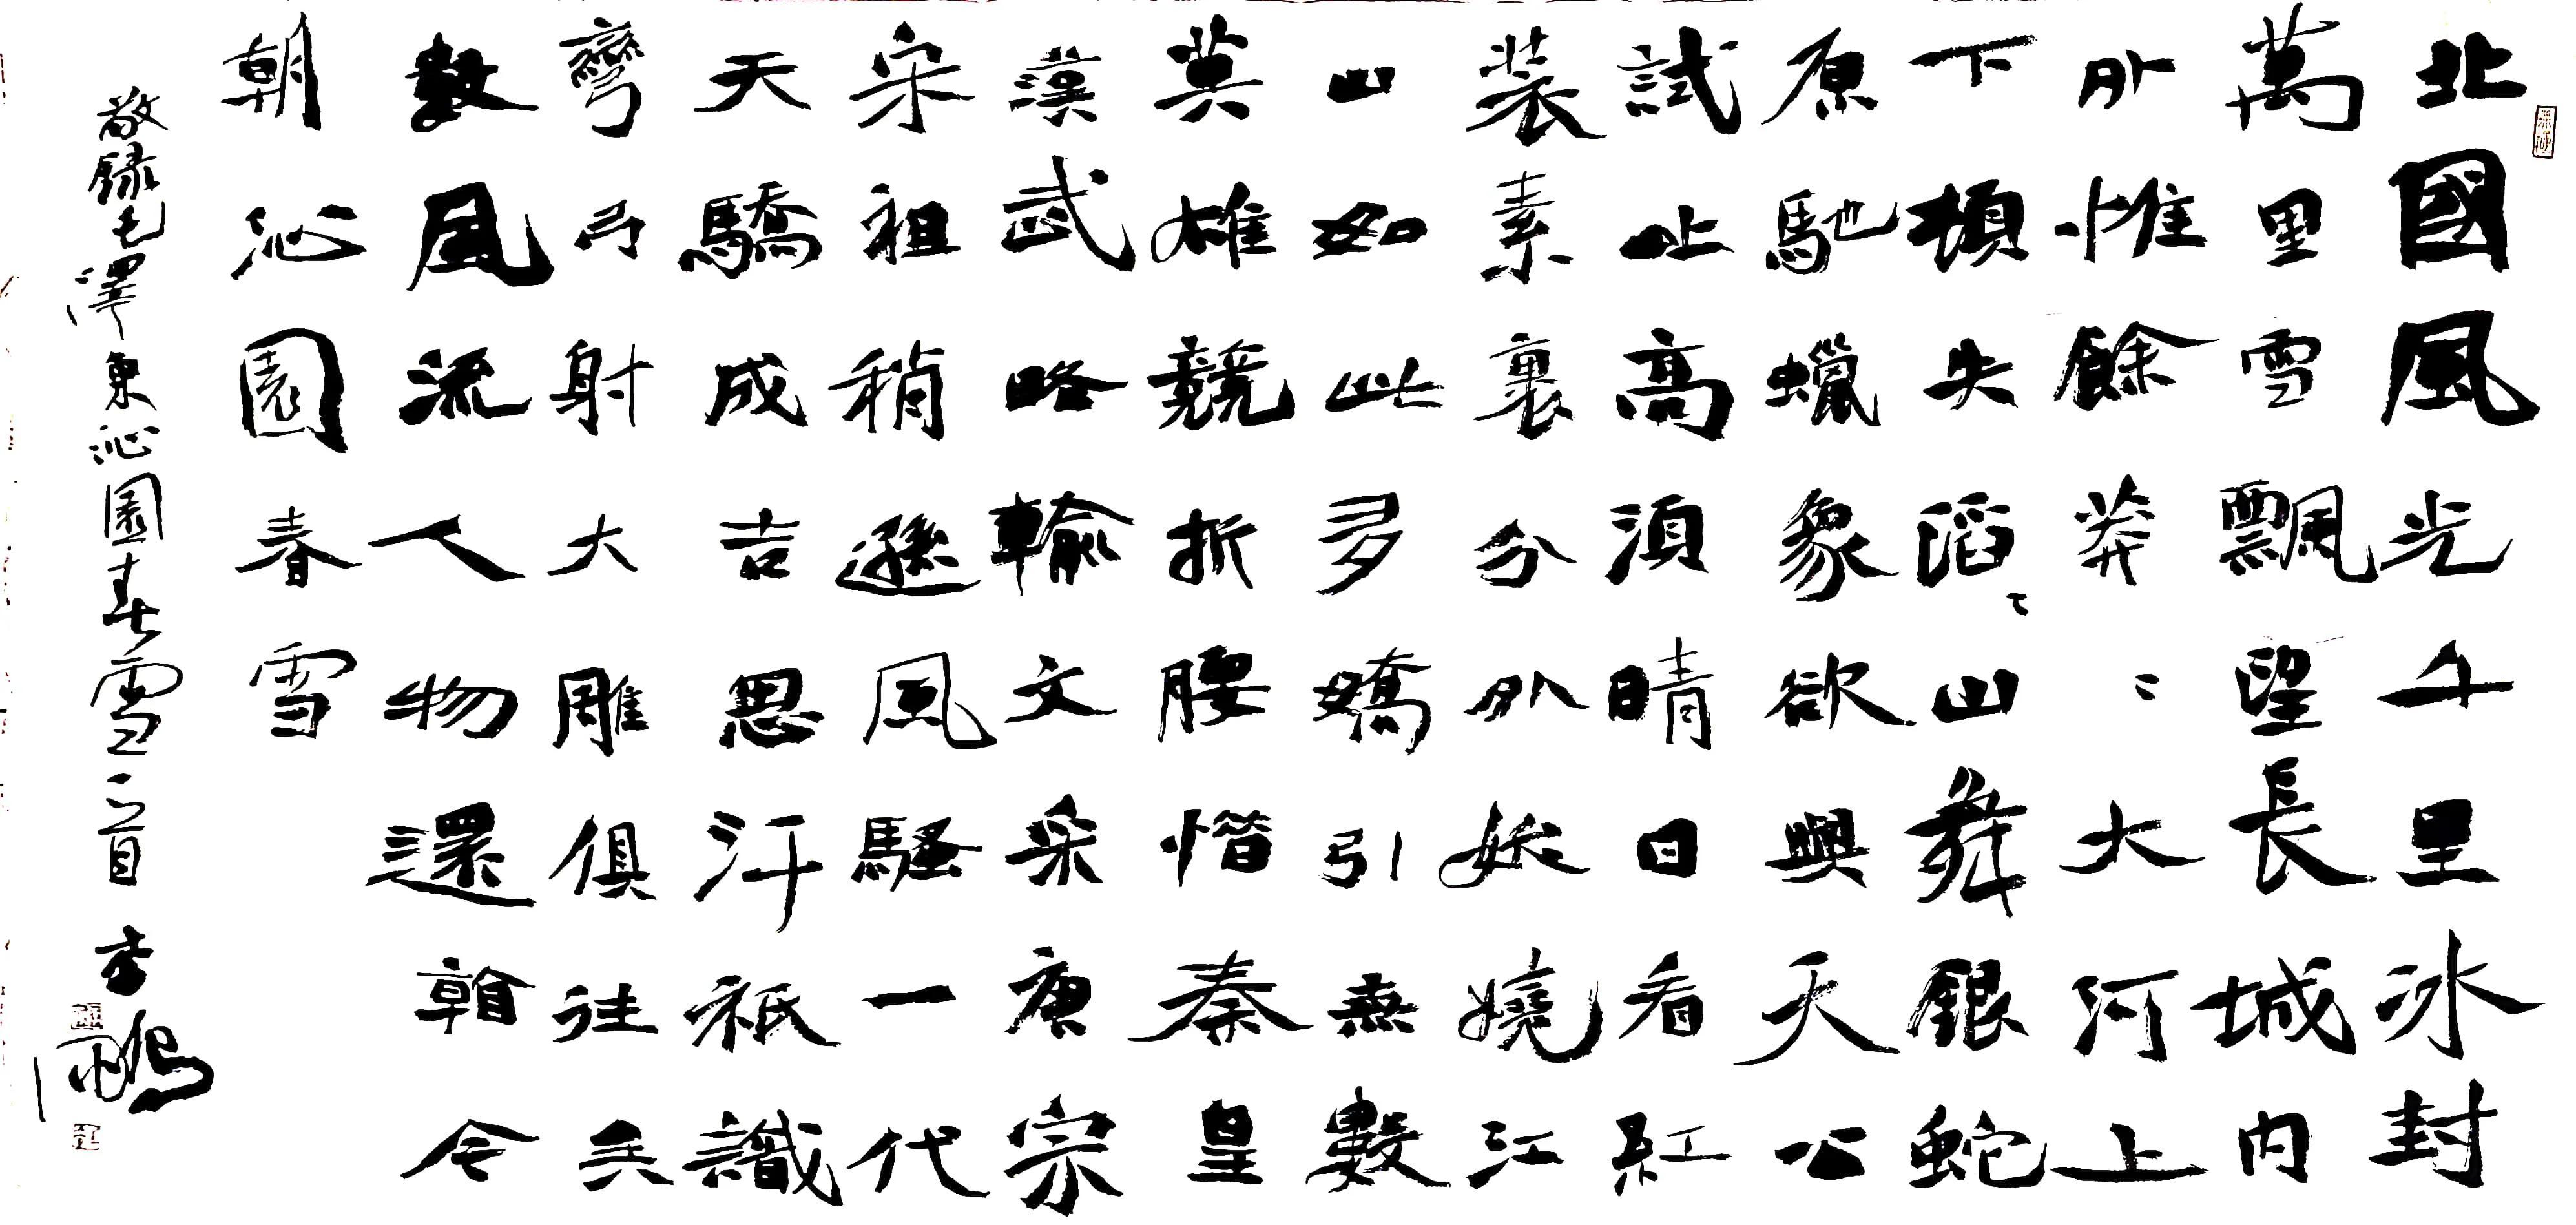 北國風光千里冰封
萬里雪飄望長城內
外惟餘莽〻大河上
下頓失滔〻山舞銀蛇
原馳蠟象欲與天公
試比高須晴日看紅
裝素裹分外妖嬈江
山如此多嬌引無數
英雄競折腰惜秦皇
漢武略輸文采唐宗
宋祖稍遜風騷一代
天驕成吉思汗祇識
彎弓射大雕俱往矣
數風流人物還看今
朝沁園春雪
敬錄毛澤東沁園春雪一首 李鵬